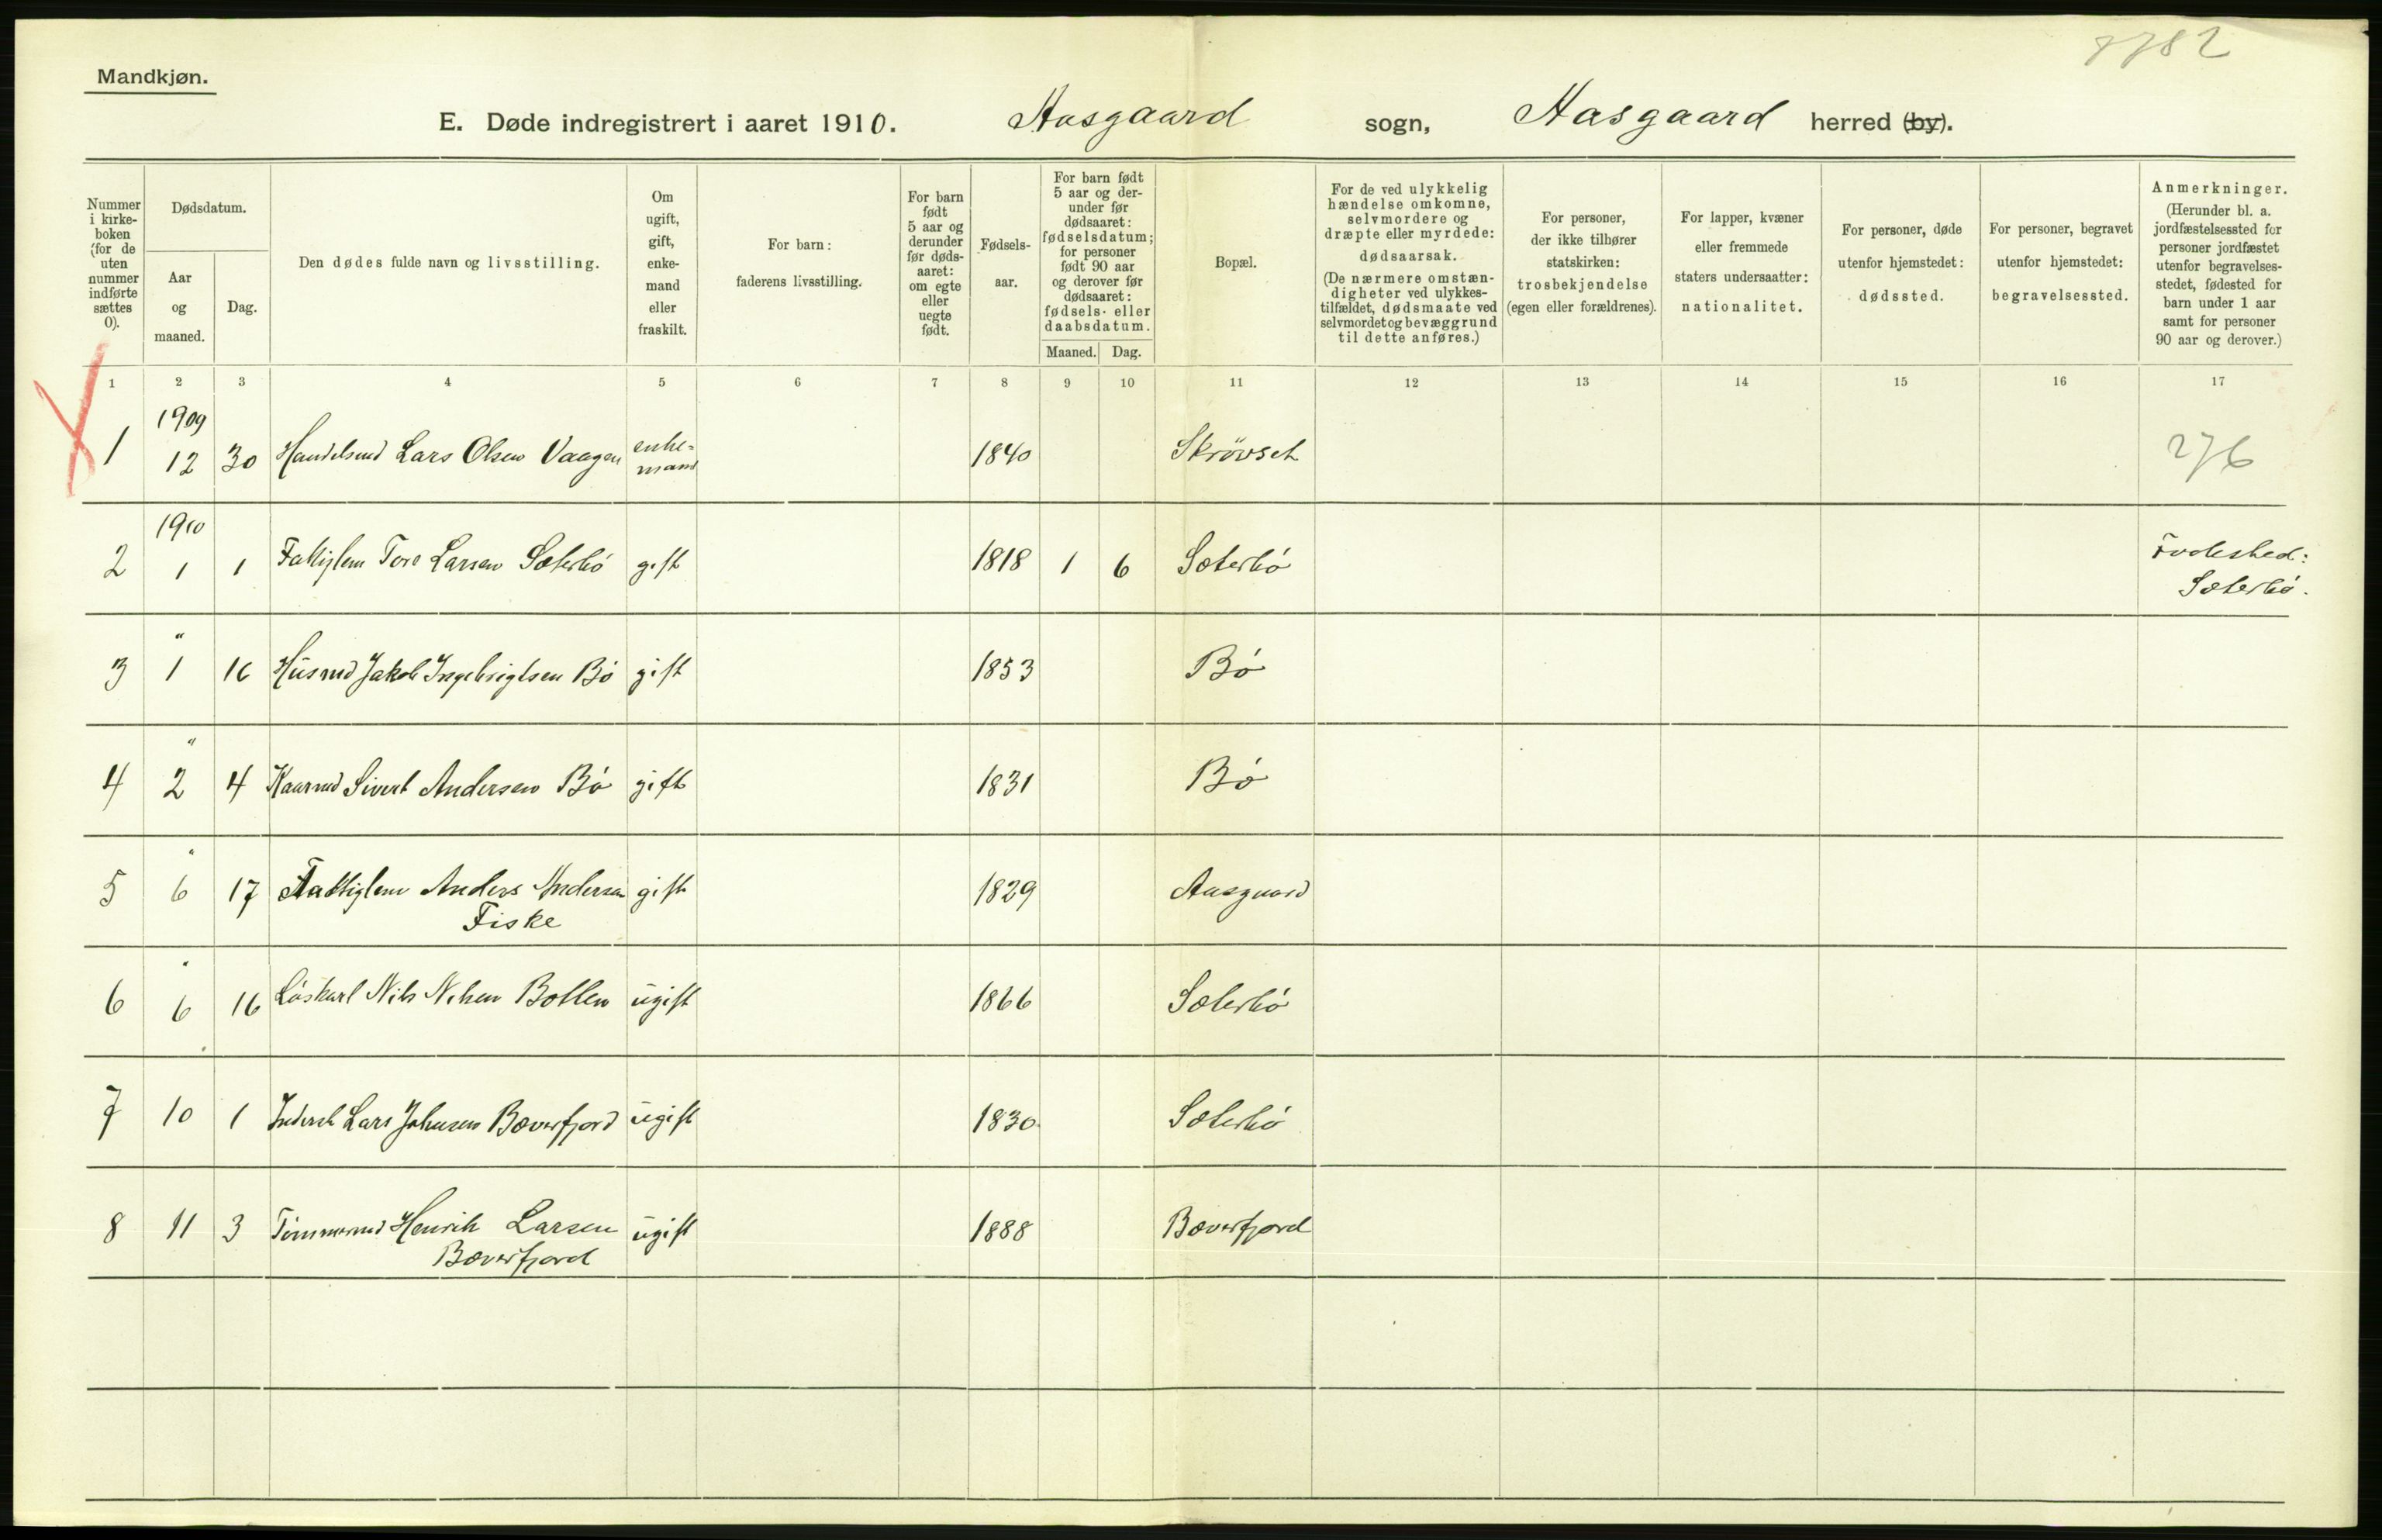 8782
Mandkjøn.
E. Døde indregistrert i aaret 1910. Aasgaard sogn, Aasgaard herred (by).
Nummer i kirke-boken (for de uten nummer indførte sættes 0).
Dødsdatum.
Aar og maaned.
Dag.
Den dødes fulde navn og livsstilling.
Om ugift, gift, enke-mand eller fraskilt.
For barn: faderens livsstilling.
For barn født 5 aar og derunder før døds-aaret: om egte eller uegte født.
Fødsels-aar.
For barn født 5 aar og der-under før dødsaaret: fødselsdatum; for personer født 90 aar og derover før dødsaaret: fødsels- eller daabsdatum.
Maaned. Dag.
Bopæl.
For de ved ulykkelig hændelse omkomne, selvmordere og dræpte eller myrdede: dødsaarsak. (De nærmere omstæn-digheter ved ulykkes-tilfældet, dødsmaate ved selvmordet og bevæggrund til dette anføres.)
For personer, der ikke tilhører statskirken: trosbekjendelse (egen eller forældrenes).
For lapper, kvæner eller fremmede staters undersaatter: nationalitet.
For personer, døde utenfor hjemstedet: dødssted.
For personer, begravet utenfor hjemstedet: begravelsessted.
Anmerkninger. (Herunder bl. a. jordfæstelsessted for personer jordfæstet utenfor begravelses-stedet, fødested for barn under 1 aar samt for personer 90 aar og derover.)
1 2 3 4 5 6 7 8 9 10 11 12 13 14 15 16 17
1909
1 12 30 Handelsmd Lars Olsen Vaagen enke-mand 1840 Skrövset 276
1910
2 1 1 Fattiglem Tore Larsen Sæterbö gift 1818 1 6 Sæterbö Födested:
Sæterbö.
"
3 1 16 Husmd Jakob Ingebrigtsen Bö gift 1853 Bö
"
4 2 4 Kaarmd Sivert Andersen Bö gift 1831 Bö
"
5 6 17 Fattiglem Anders Andersen gift 1829 Aasgaard
Fiske
"
6 6 16 Löskarl Nils Nilsen Botten ugift 1866 Sæterbö
7 10 1 Inderst Lars Johnsen Bæverfjord ugift 1830 Sæterbö
8 11 3 Tömmermd Henrik Larsen ugift 1888 Bæverfjord
Bæverfjord